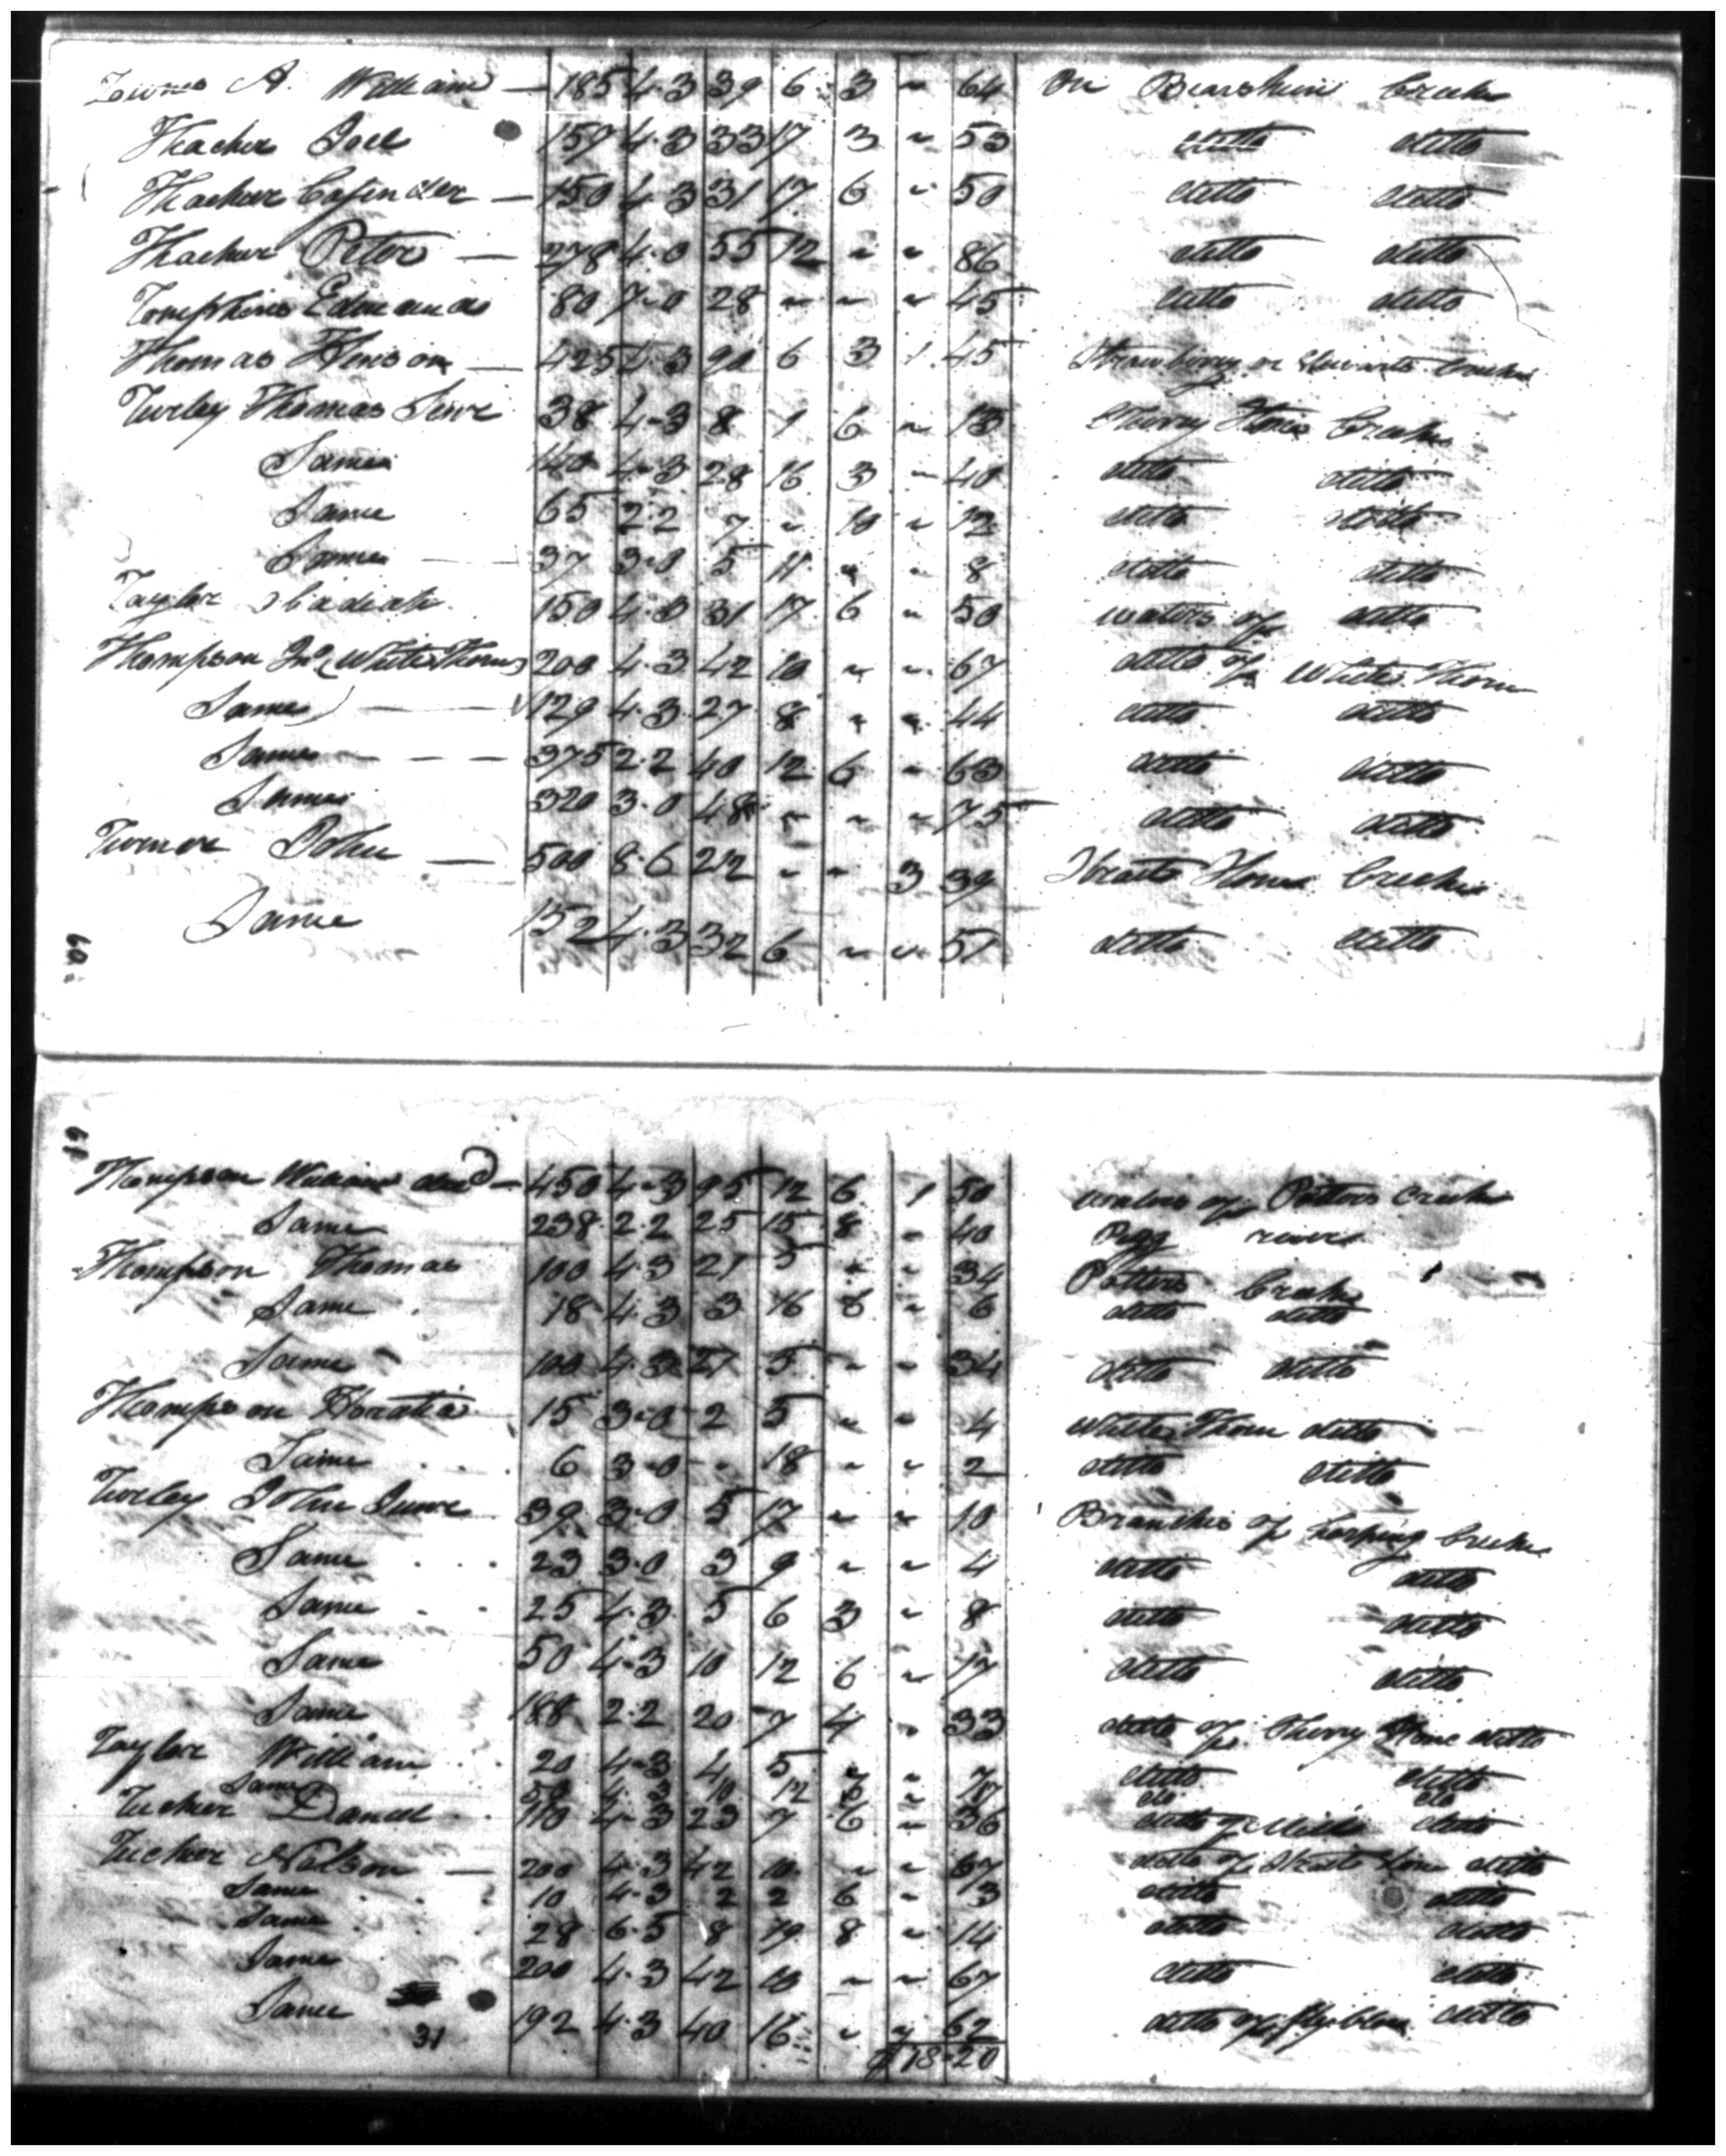 A. William — 185 4-3 39 6 3 ~ 64 On Bearskin Creek
Thacker Joel 159 4-3 33 17 3 ~ 53 ditto ditto
Thacker — 150 4-3 31 17 6 ~ 50 ditto ditto
Thacker Peter — 278 4-0 55 12 ~ ~ 86 ditto ditto
Tompkins Edmund 80 7-0 28 ~ ~ ~ 45 ditto ditto
Thomas Henson — 425 4-3 90 6 3 1 45 Strawberry or Stewarts Creek
Turley Thomas Senr 38 4-3 8 1 6 ~ 13 Cherry Stone Creek
Same 140 4-3 28 16 3 ~ 40 ditto ditto
Same 65 2-2 7 ~ 10 ~ 12 ditto ditto
Same 37 3-0 5 11 ~ ~ 8 ditto ditto
Taylor Obadiah 150 4-3 31 17 6 ~ 50 waters of ditto
Thompson Jno (White Thorn) 200 4-3 42 10 ~ ~ 67 ditto of White Thorn
Same — 129 4-3 27 8 ~ ~ 44 ditto ditto
Same — — — 375 2-2 40 12 6 ~ 63 ditto ditto
Same 320 3-0 48 ~ ~ ~ 75 ditto ditto
Turner John — 500 8-6 212 ~ ~ 3 39 Straight Stone Creek
Same 152 4-3 32 6 ~ ~ 51 ditto ditto
60
61
Thompson William decd — 450 4-3 95 12 6 1 50 waters of Potters Creek
Same 238 2-2 25 15 8 ~ 40 Pigg river
Thompson Thomas 100 4-3 21 5 ~ ~ 34 Potters Creek
Same 18 4-3 3 16 6 ~ 6 ditto ditto
Same 100 4-3 21 5 ~ ~ 34 ditto ditto
Thompson Horatio 15 3-0 2 5 ~ ~ 4 White Thorn ditto
Same 6 3-0 - 18 ~ ~ 2 ditto ditto
Turley John Junr 39 3-0 5 17 ~ ~ 10 Branches of Creek
Same 23 3-0 3 9 ~ ~ 4 ditto ditto
Same 25 4-3 5 6 3 ~ 8 ditto ditto
Same 50 4-3 10 12 6 ~ 17 ditto ditto
Same 188 2-2 20 7 4 ~ 33 ditto of Cherry Stone ditto
Taylor William 20 4-3 4 5 ~ ~ 7 ditto ditto
Same 50 4-3 10 12 6 ~ 17 do do
Tucker Daniel 110 4-3 23 7 6 ~ 36 ditto of Mill ditto
Tucker Nelson — 200 4-3 42 10 ~ ~ 67 ditto of Straight Stone ditto
Same 10 4-3 2 2 6 ~ 3 ditto ditto
Same 28 6-5 8 19 8 ~ 14 ditto ditto
Same 200 4-3 42 10 ~ ~ 67 ditto ditto
Same 192 4-3 40 16 ~ ~ 62 ditto of Flyblow ditto
31 $18-20